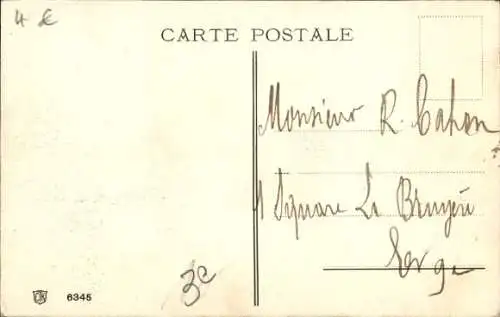 4 €
CARTE POSTALE
Monsieur R. Cahen
1 Square La Bruyère
3e
6345